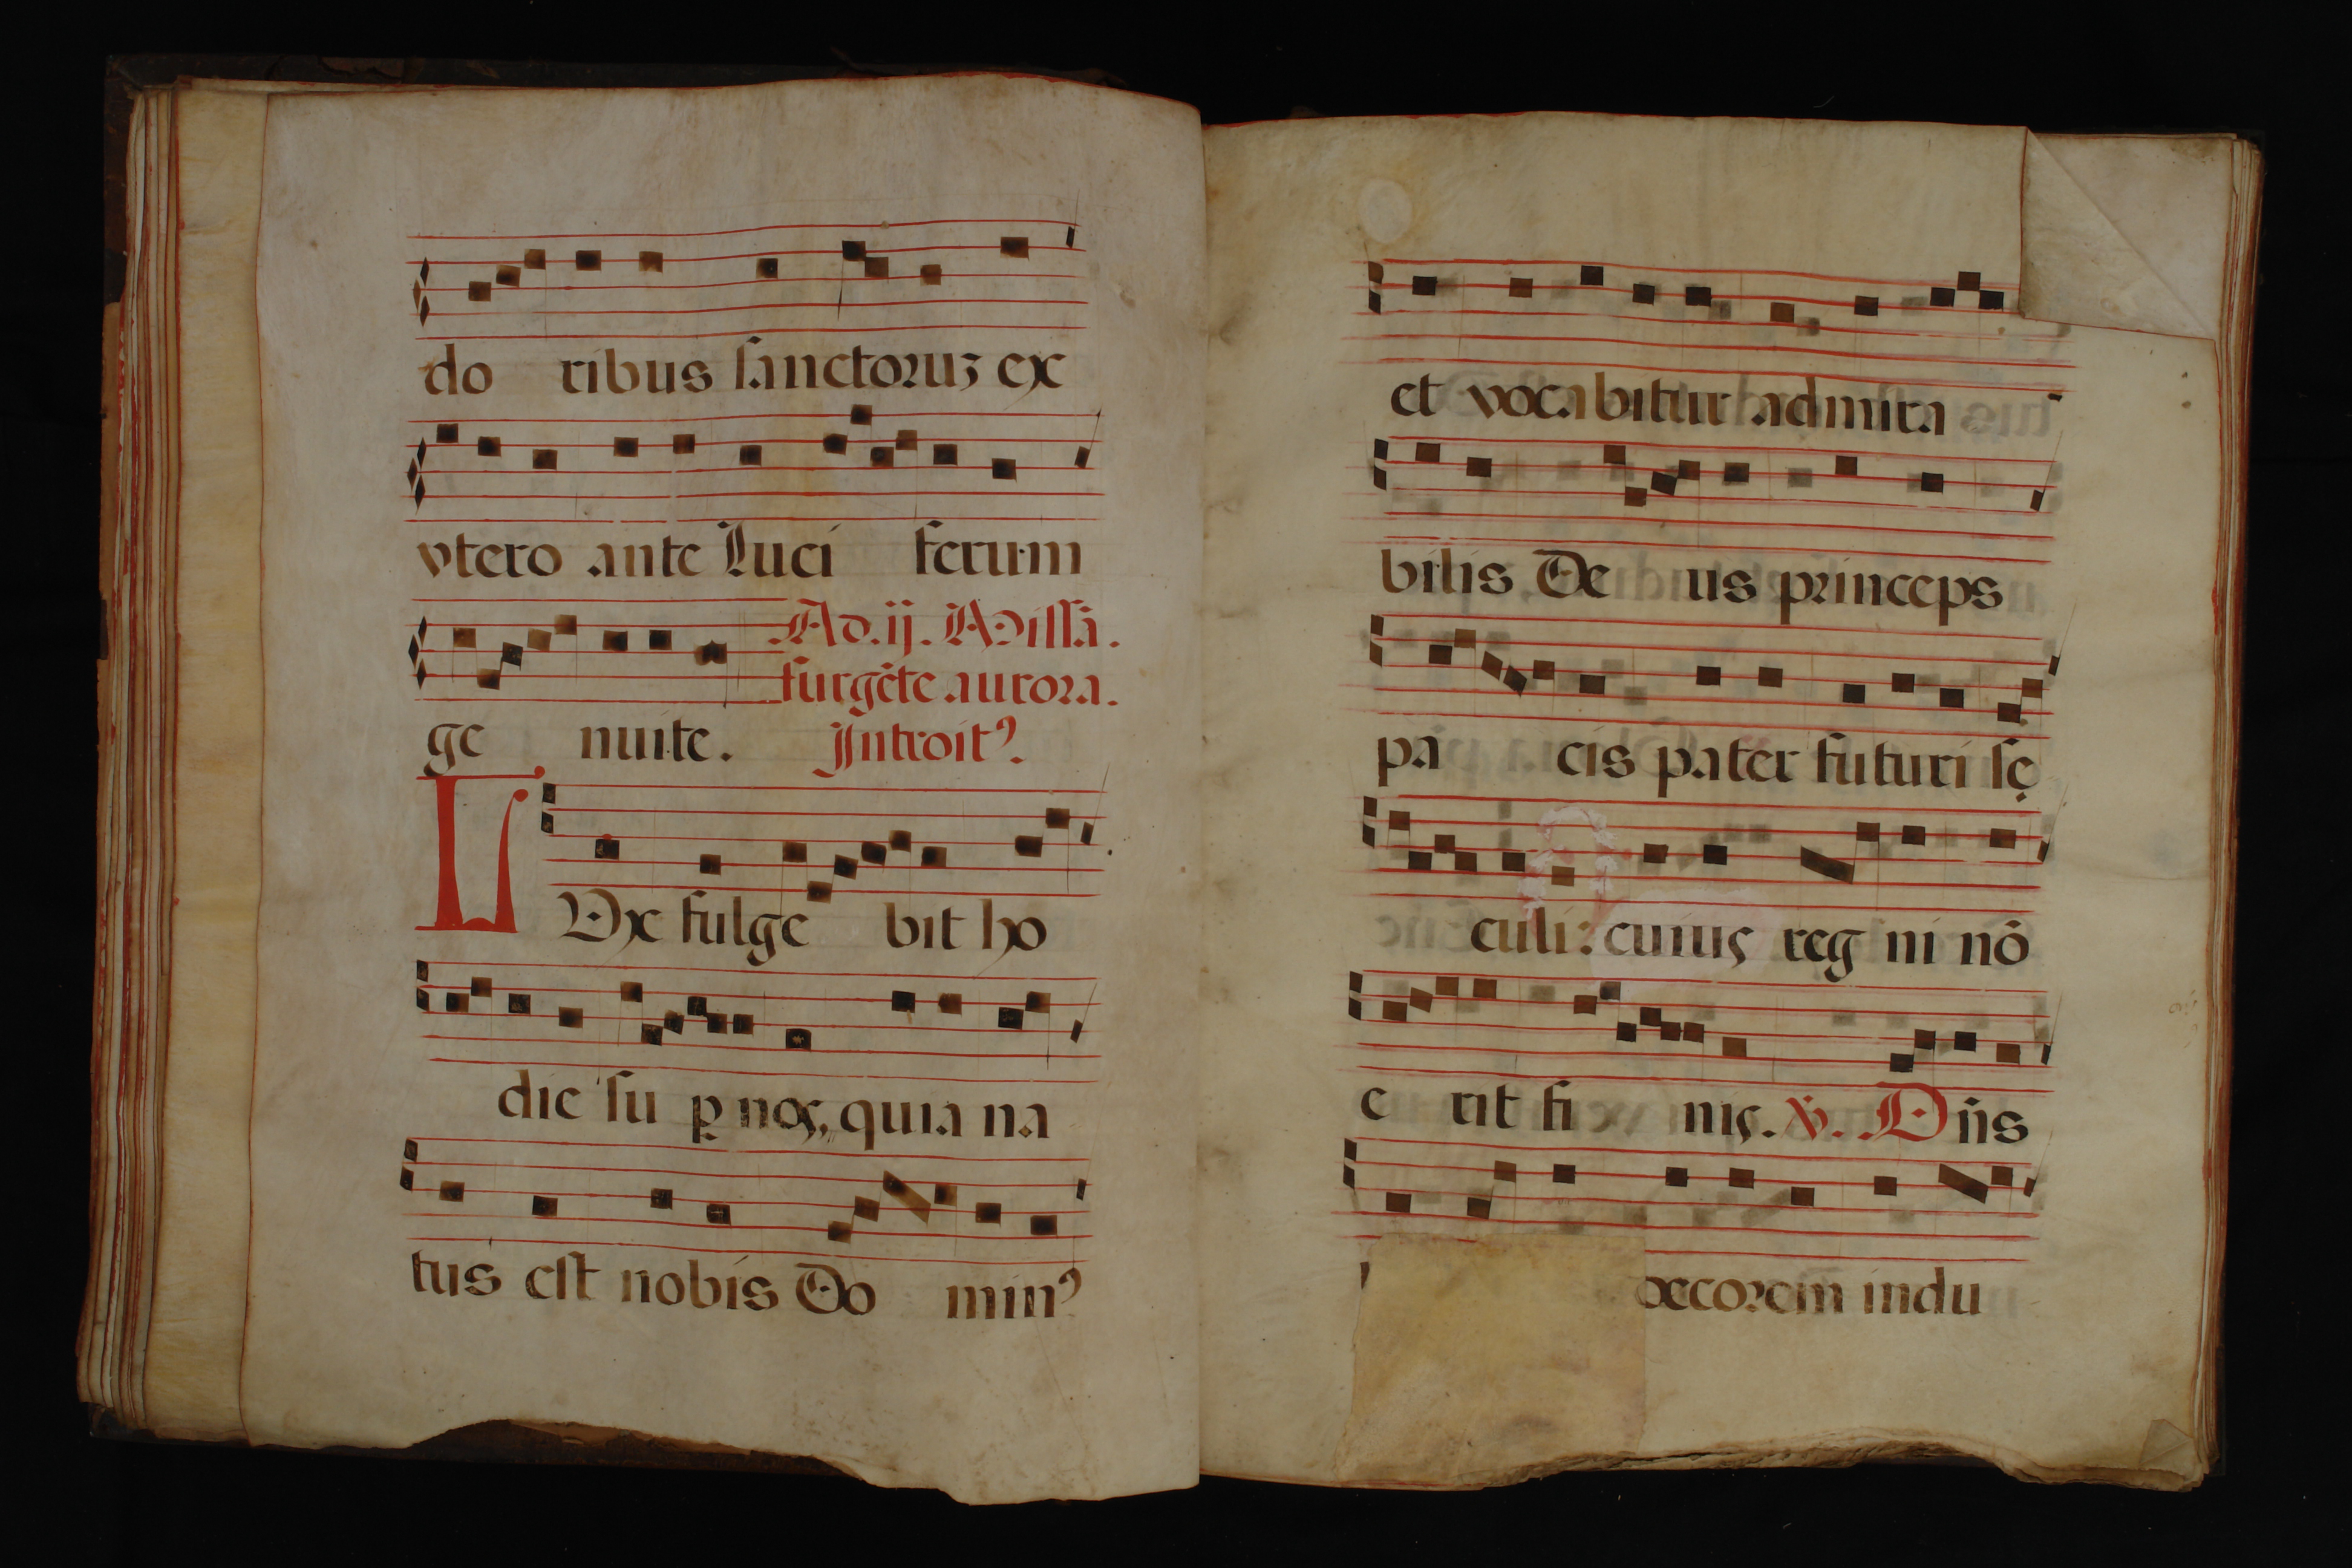 do ribus ſanctoruꝫ ex
vtero ante Luci ferum
Ad. ij. Miſſã.
ſurgẽte aurora.
ge nuite. Introitꝰ.
LUx fulge bit ho
die ſu ꝑ nos, quia na
tus eſt nobis Do minꝰ
et vocabitur admira
bilis De us princeps
pa cis pater futuri ſę
culi: cuius reg ni nõ
e rit fi nis. ℣. Dñs
decorem indu